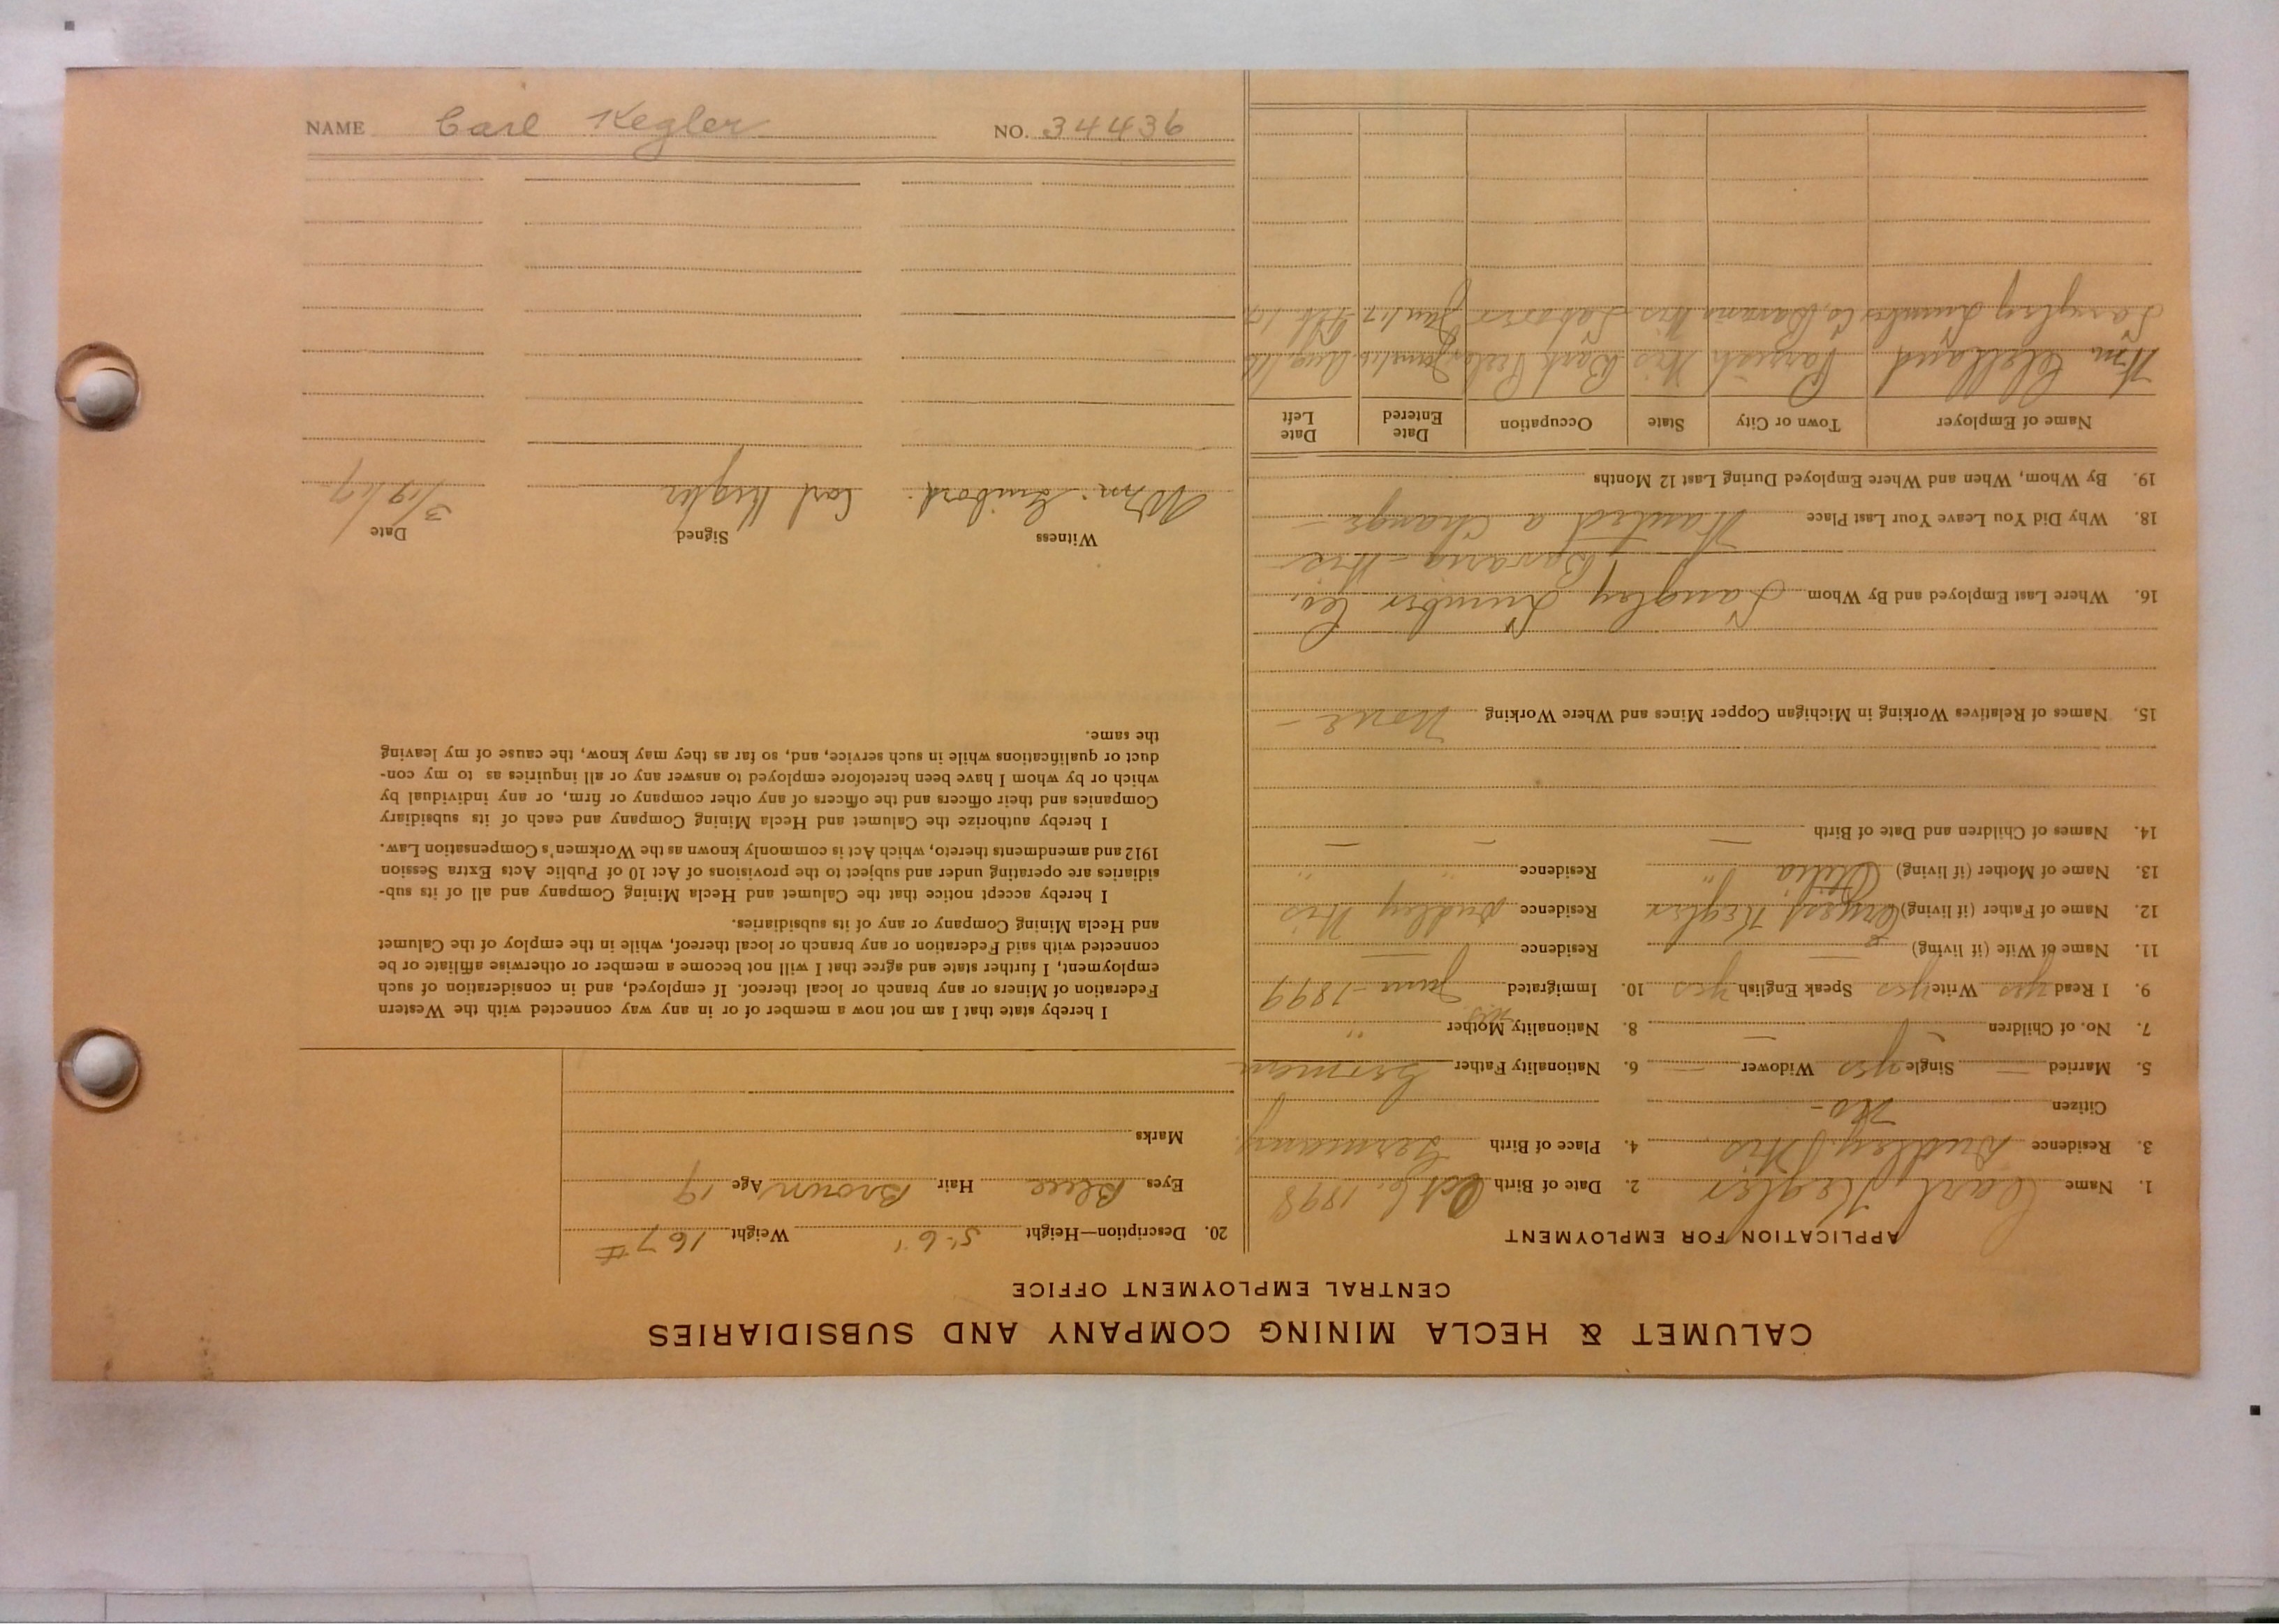 CALUMET & HECLA MINING COMPANY AND SUBSIDIARIES
CENTRAL EMPLOYMENT OFFICE
APPLICATION FOR EMPLOYMENT
1. Name Carl Kegler 2. Date of Birth Oct 6, 1898
3. Residence Dudley Wis 4. Place of Birth Germany.
Citizen No-
5. Married — Single yes Widower — 6. Nationality Father German
7. No. of Children — 8. Nationality Mother "
9. I Read yes Write yes Speak English yes 10. Immigrated June - 1899
11. Name of Wife (if living) — Residence —
12. Name of Father (if living) Kegler Residence Dudley Wis
13. Name of Mother (if living) " Residence " "
14. Names of Children and Date of Birth — — —
15. Names of Relatives Working in Michigan Copper Mines and Where Working None -
16. Where Last Employed and By Whom Langley Lumber Co.
Bavaria - Wis -
18. Why Did You Leave Your Last Place Wanted a Change -
19. By Whom, When and Where Employed During Last 12 Months
Name of Employer Town or City State Occupation Date Entered Date Left
Wm Wis Bark June 16 Aug 16
Langley Lumber Co. Bavaria Wis Laborer Jan 17 Feb. 17
20. Description—Height 5'-6" Weight 167 #
Eyes Blue Hair Brown Age 19
Marks
I hereby state that I am not now a member of or in any way connected with the Western
Federation of Miners or any branch or local thereof. If employed, and in consideration of such
employment, I further state and agree that I will not become a member or otherwise affiliate or be
connected with said Federation or any branch or local thereof, while in the employ of the Calumet
and Hecla Mining Company or any of its subsidiaries.
I hereby accept notice that the Calumet and Hecla Mining Company and all of its sub-
sidiaries are operating under and subject to the provisions of Act 10 of Public Acts Extra Session
1912 and amendments thereto, which Act is commonly known as the Workmen's Compensation Law.
I hereby authorize the Calumet and Hecla Mining Company and each of its subsidiary
Companies and their officers and the officers of any other company or firm, or any individual by
which or by whom I have been heretofore employed to answer any or all inquiries as to my con-
duct or qualifications while in such service, and, so far as they may know, the cause of my leaving
the same.
Witness Signed Date
Wm. Guibord. Carl Kegler 3/19/17
NAME Carl Kegler NO. 34436